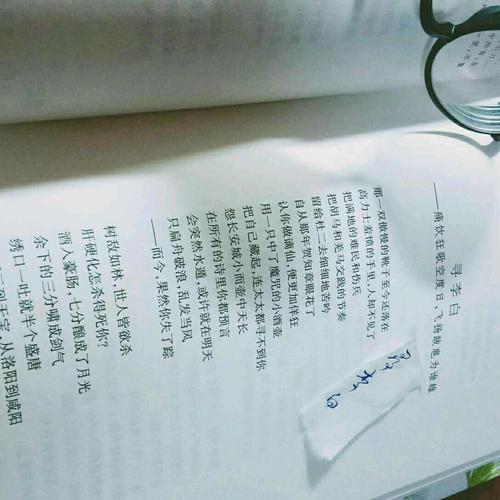 寻李白
——痛饮狂歌空度日，飞扬跋扈为谁雄
那一双傲慢的靴子至今还落在
高力士羞愤的手里，人却不见了
把满地的难民和伤兵
把胡马和羌马交践的节奏
留给杜二去细细地苦吟
自从那年贺知章眼花了
认你做谪仙，便更加佯狂
用一只中了魔咒的小酒壶
把自己藏起，连太太都寻不到你
怨长安城小而壶中天长
在所有的诗里你都预言
会突然水遁，或许就在明天
只扁舟破浪，乱发当风
——而今，果然你失了踪
树敌如林，世人皆欲杀
肝硬化怎杀得死你？
酒入豪肠，七分酿成了月光
余下的三分啸成剑气
绣口一吐就半个盛唐
到天宝，从洛阳到咸阳
寻李白